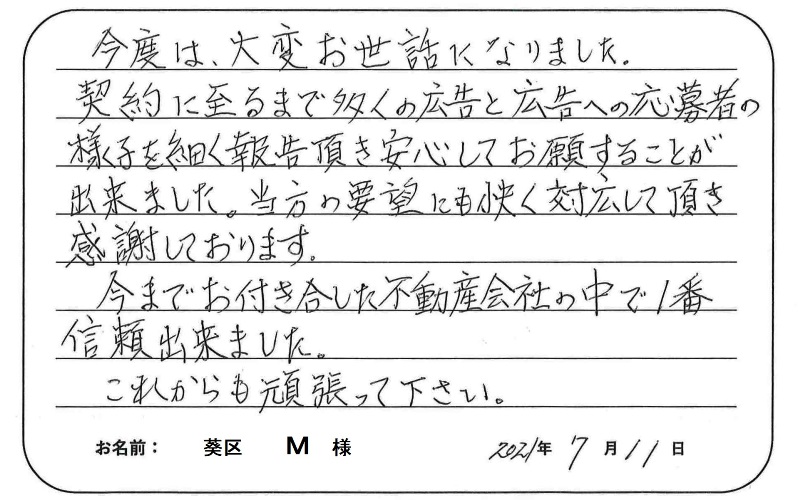 今度は、大変お世話になりました。
契約に至るまで多くの広告と広告への応募者の
様子を細く報告頂き安心してお願することが
出来ました。当方の要望にも快く対応して頂き
感謝しております。
今までお付き合した不動産会社の中で1番
信頼出来ました。
これからも頑張って下さい。
お名前： 葵区 M 様 2021年 7月11日